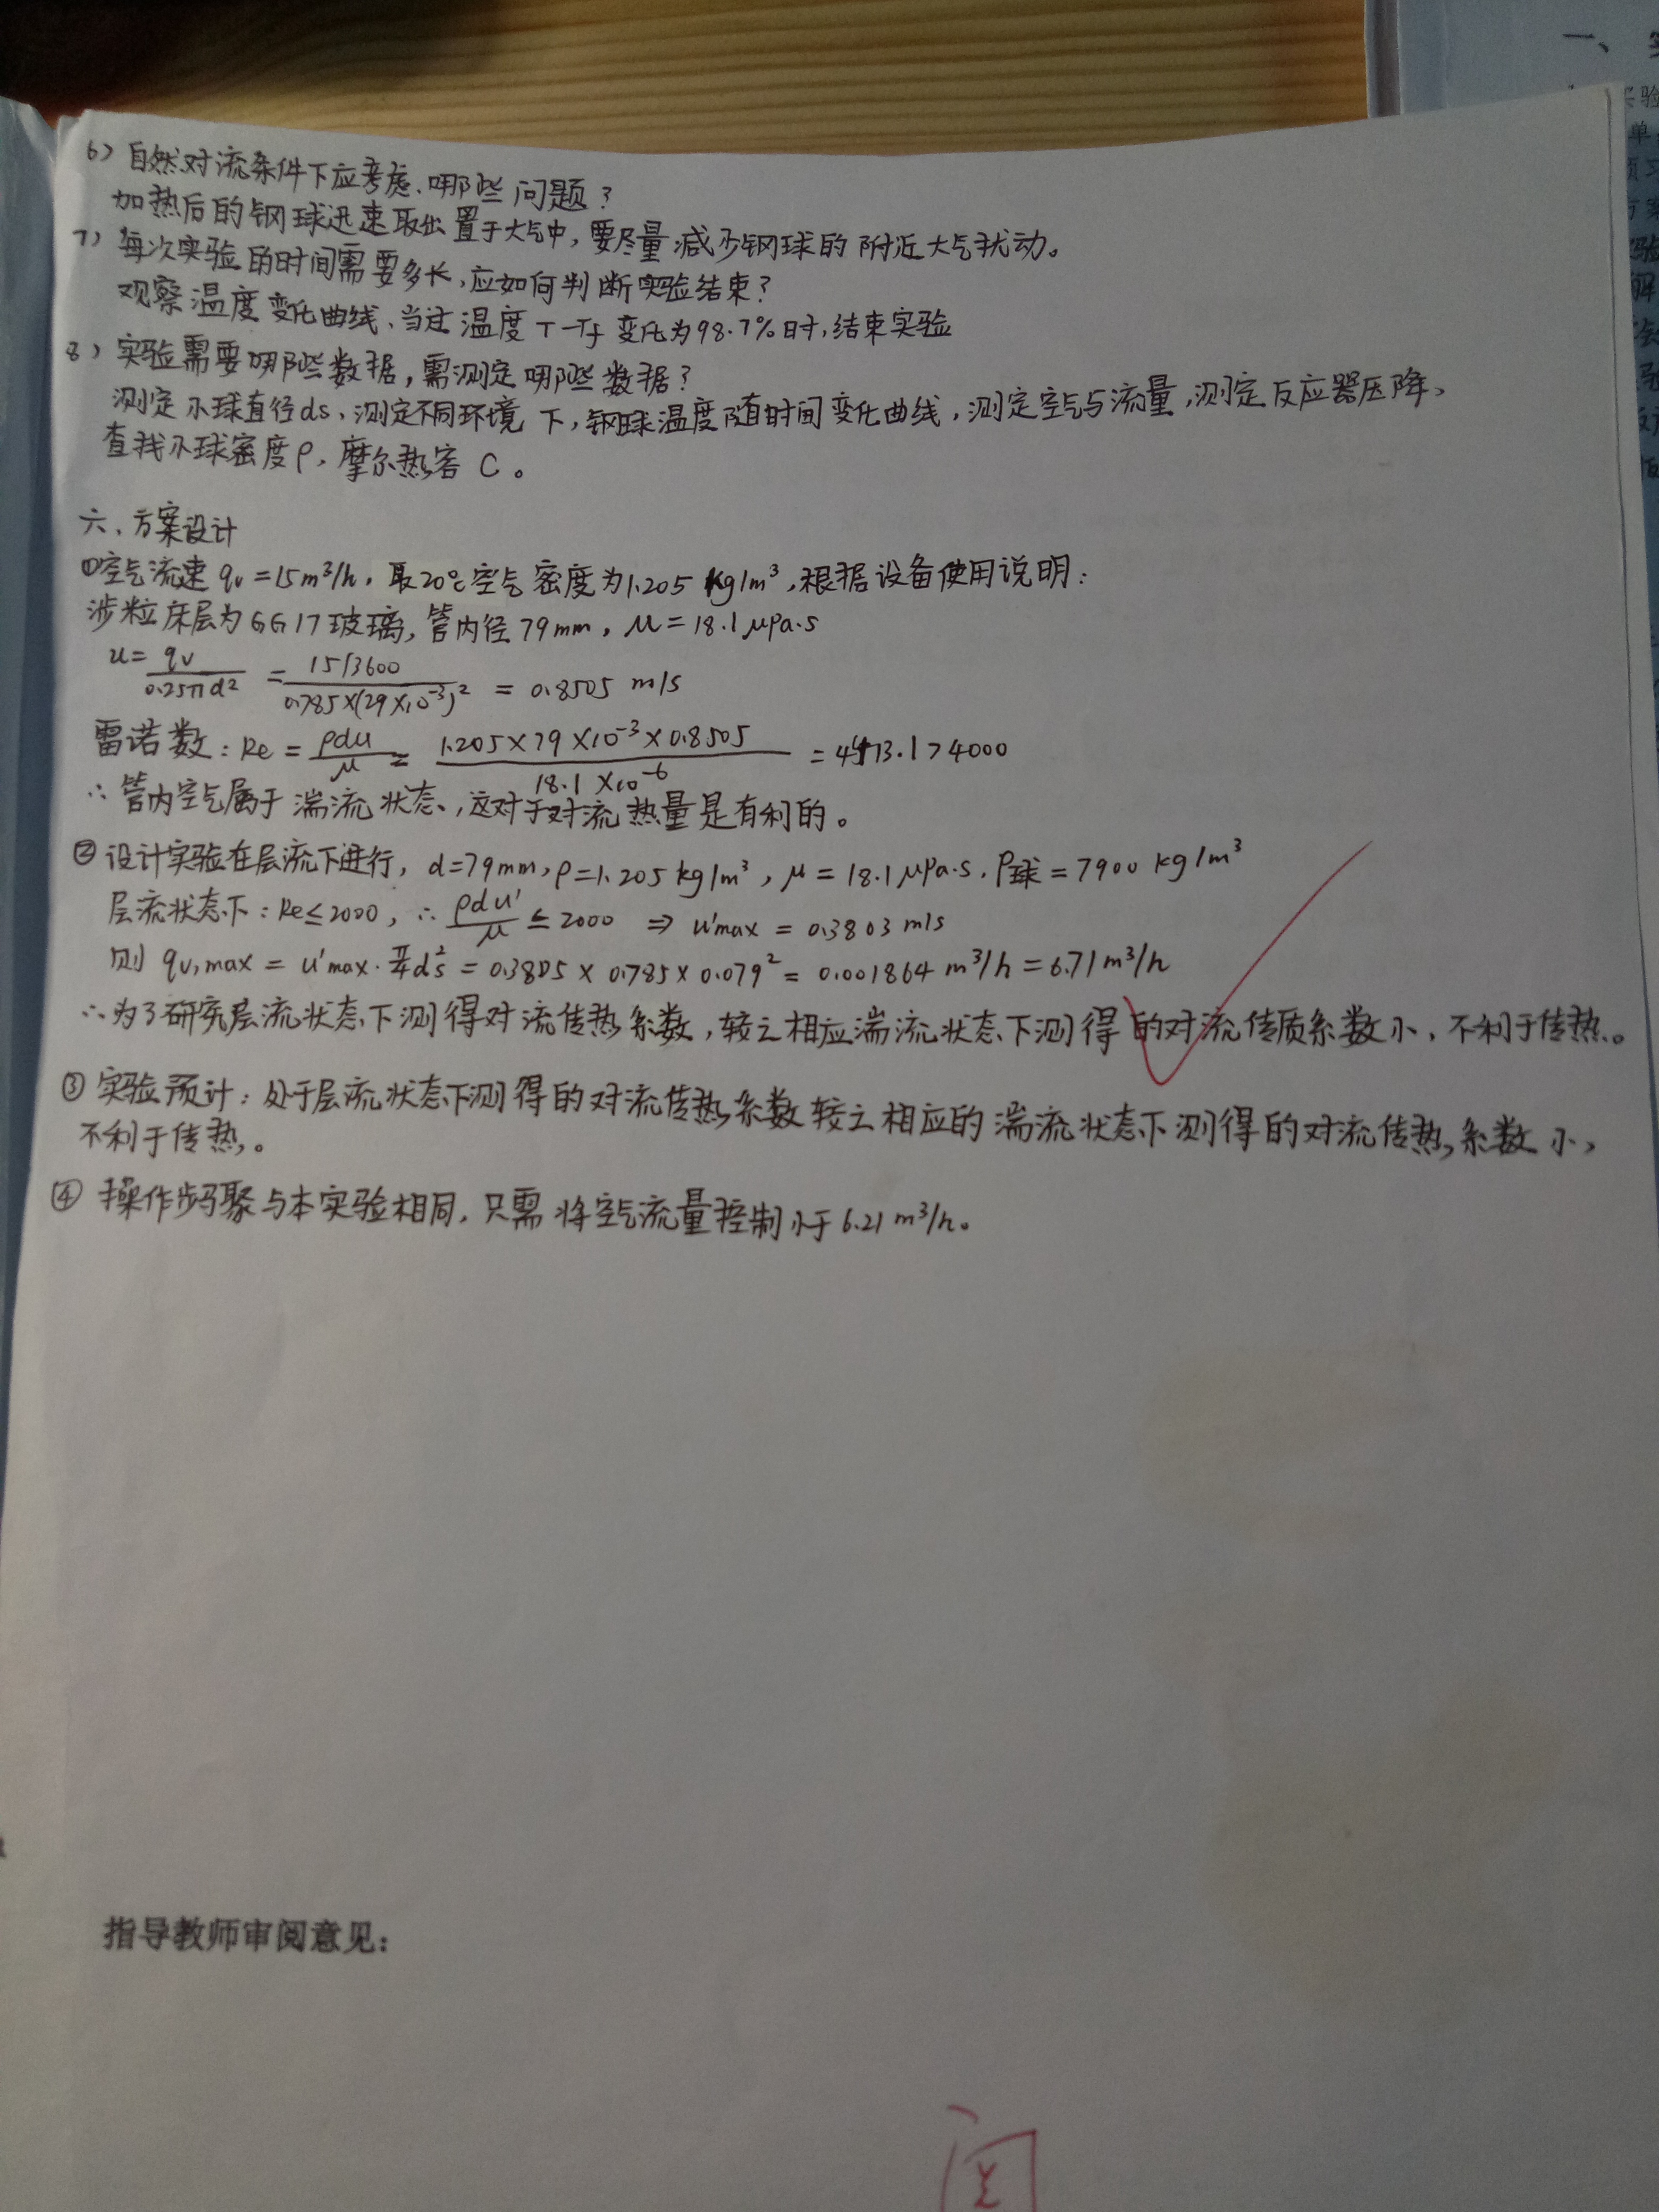 6) 自然对流条件下应考虑哪些问题?
加热后的钢球迅速取出置于大气中,要尽量减少钢球的附近大气扰动。
7) 每次实验的时间需要多长,应如何判断实验结束?
观察温度变化曲线、当过温度 T-Tf 变化为98.7%时,结束实验
8) 实验需要哪些数据,需测定哪些数据?
测定小球直径ds、测定不同环境下,钢球温度随时间变化曲线,测定空气与流量,测定反应器压降、
查找小球密度ρ,摩尔热容 C。
六、方案设计
①空气流速 qv=15m³/h, 取20℃空气密度为1.205 kg/m³,根据设备使用说明:
涉粒床层为GG17玻璃,管内径79mm, μ=18.1μPa·s
u= qv/0.25πd² = 15/3600/0.785×(29×10⁻³)² = 0.8505 m/s
雷诺数: Re = ρdu/μ = 1.205×79×10⁻³×0.8505/18.1×10⁻⁶ = 4473.1>4000
∴管内空气属于湍流状态,这对于对流热量是有利的。
②设计实验在层流下进行, d=79mm,ρ=1.205kg/m³, μ=18.1μPa·s, ρ球=7900 kg/m³
层流状态下: Re≤2000, ∴ ρdu'/μ ≤2000 ⇒ u'max = 0.3803 m/s
则 qv,max = u'max·π/4ds² = 0.3805×0.785×0.079² = 0.001864 m³/h = 6.71m³/h
∴为了研究层流状态下测得对流传热系数,较之相应湍流状态下测得的对流传质系数小,不利于传热。
③实验预计:处于层流状态下测得的对流传热系数较之相应的湍流状态下测得的对流传热系数小,
不利于传热。
④ 操作步骤与本实验相同,只需将空气流量控制小于6.21 m³/h。
指导教师审阅意见:
阅
一、
实验
单